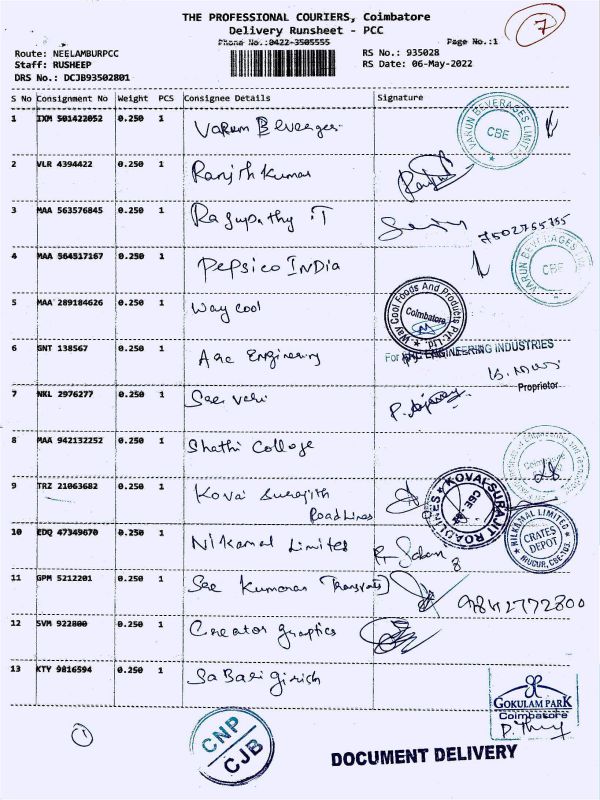 THE PROFESSIONAL COURIERS, Coimbatore
7
Delivery Runsheet - PCC
Phone No.:0422-3505555
Page No.:1
Route: NEELAMBURPCC
RS No.: 935028
Staff: RUSHEEP
RS Date: 06-May-2022
DRS No.: DCJB93502801
S No Consignment No Weight PCS Consignee Details Signature
1 IXM 501422052 0.250 1 Varun Beverages
VARUN BEVERAGES LIMITED
CBE
2 VLR 4394422 0.250 1 Ranjith Kumar
3 MAA 563576845 0.250 1 Ragupathy .T
7502755755
4 MAA 564517167 0.250 1 Pepsico India
VARUN BEVERAGES LTD
CBE
5 MAA 289184626 0.250 1 Way cool
Way Cool Foods And Products Pvt. Ltd.
Coimbatore
6 GNT 138567 0.250 1 Engineering
For ENGINEERING INDUSTRIES
Proprietor
7 NKL 2976277 0.250 1 Sree
8 MAA 942132252 0.250 1 College
Coimbatore
9 TRZ 21063682 0.250 1 Kovai Surajith
Road Lines
KOVAI SURAJIT ROADLINES
CBE
10 EDQ 47349670 0.250 1 Nilkamal Limited
NILKAMAL LIMITED
CRATES
DEPOT
11 GPM 5212201 0.250 1 Sree Kumaran Transports
9842772800
12 SVM 922800 0.250 1 Creator graphics
13 KTY 9816594 0.250 1 Sabari girish
GOKULAM PARK
Coimbatore
1
CNP
CJB
DOCUMENT DELIVERY